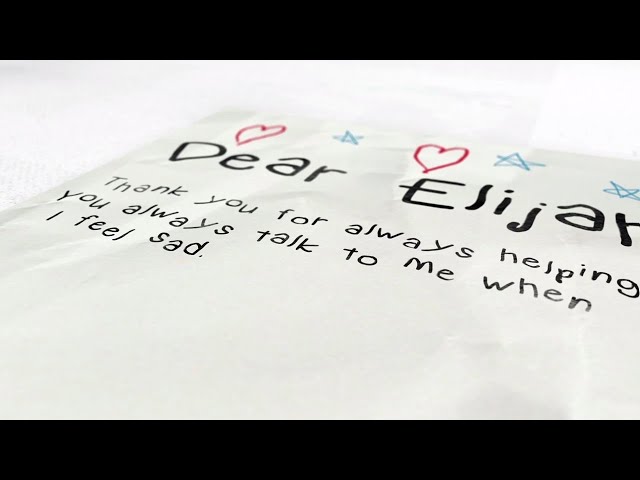 Dear Elijah
Thank you for always helping
you always talk to me when
I feel sad.